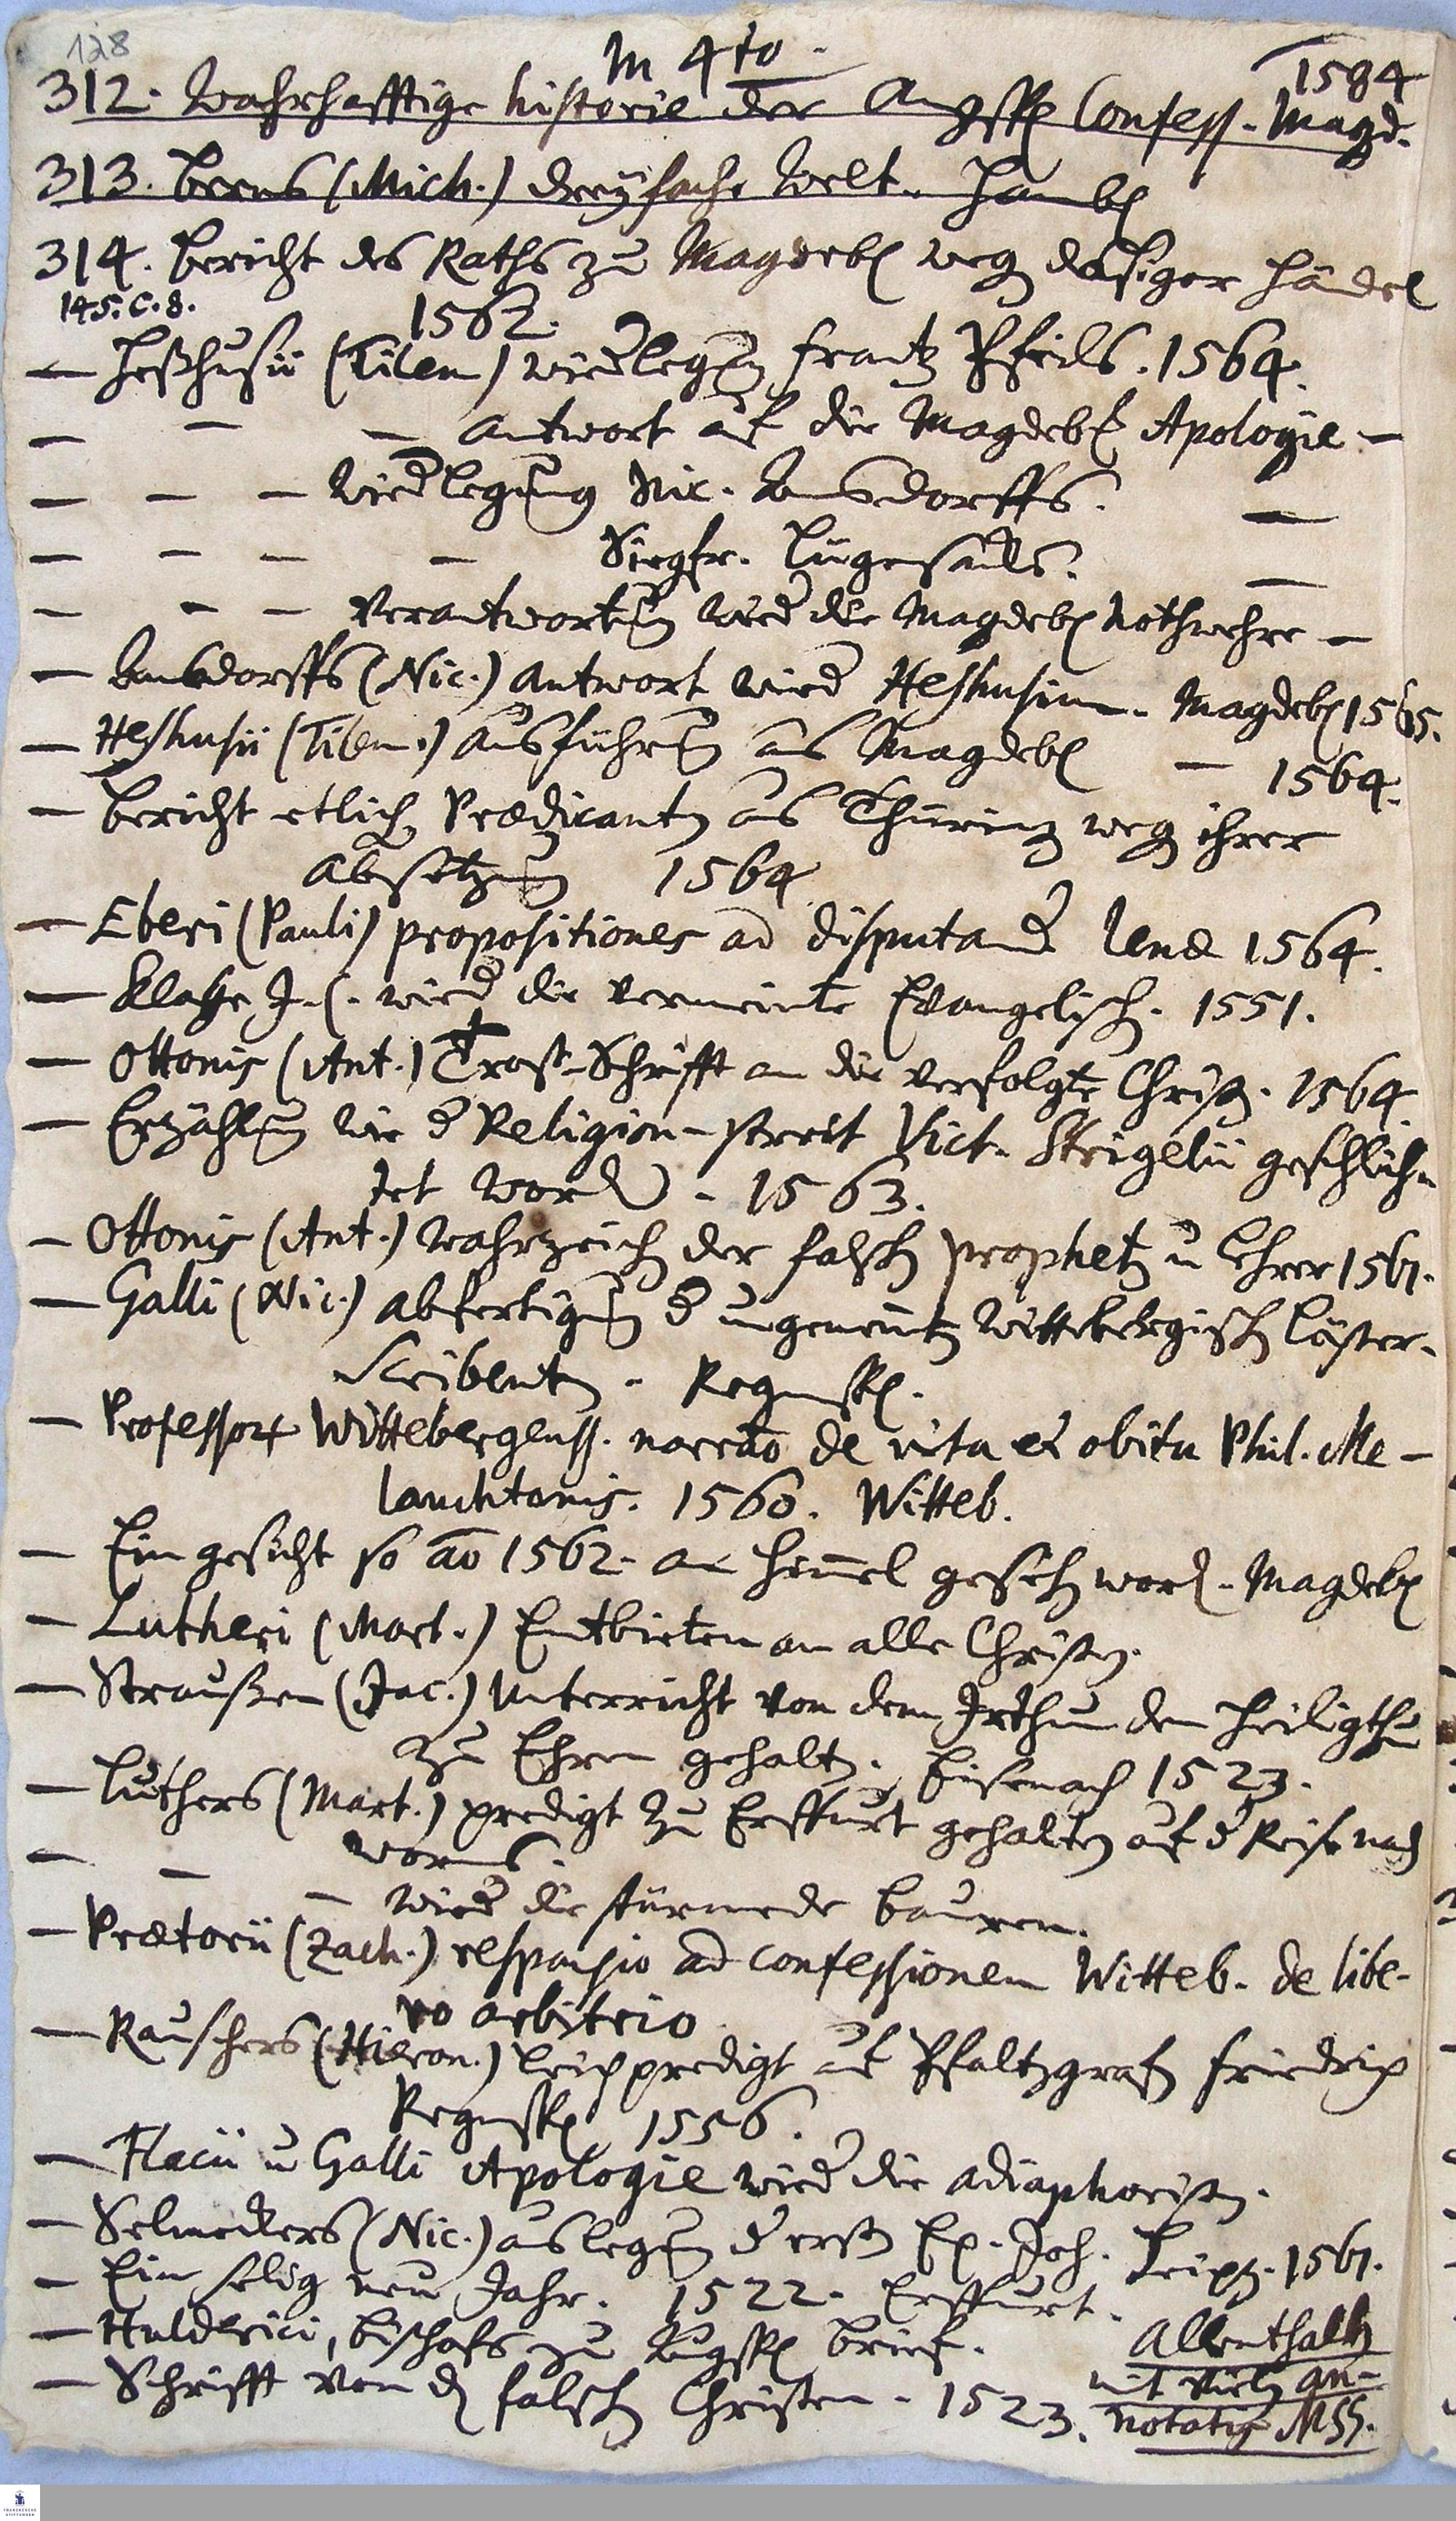 128
In 4to.
312. Wahrhafftige historie der Augsp. Confess. Magd. 1584
313. Berns (Mich.) dreyfache Welt. Hamb.
314. Bericht des Raths zu Magdeb. weg. dasiger händel
145. C. 8. 1562.
— Heßhusii (Tilem) wiederlegung frantz Pfeils. 1564.
— — — Antwort auf die Magdeb. Apologie —
— — — Wiederlegung Nic. Amsdorffs. —
— — — — Siegfr. Lügensacks. —
— — — Verantwortung wieder die Magdeb. Nothwehre —
— Amsdorffs (Nic.) Antwort wieder Heshusium. Magdeb. 1565.
— Heshusii (Tilem.) Ausführung aus Magdeb. — 1564.
— Bericht etlich. Prædicanten aus Thüringen weg. ihrer
absetzung 1564
— Eberi (Pauli) propositiones ad disputand. 1564.
— Klage J. C. wieder die vermeinte Evangelisch. 1551.
— Ottonis (Ant.) Trost-Schrifft an die verfolgte Christen. 1564.
— Erzählung wie der Religion-streit Vict. Strigelii geschlich-
tet worden. 1563.
— Ottonis (Ant.) wahrzeichen der falschen propheten u Lehrer 1561.
— Galli (Nic.) abfertigung der ungenennten Wittebergischen Läster-
Scribenten. Regensp.
— Professor. Wittebergenss. narratio de vita et obitu Phil. Me-
lanchtonis. 1560. Witteb.
— Ein gesicht so ao 1562. am Himel gesehen word. Magdeb.
— Lutheri (Mart.) Entbieten an alle Christen.
— Straußen (Jac.) Unterricht von dem Irthum den Heiligthum
zu Ehren gehalten. Eisenach 1523.
— Luthers (Mart.) predigt zu Erffurt gehalten auf der Reise nach
Worms.
— — — wieder die stürmende Bauren.
— Prætorii (Zach.) responsio ad confessionem Witteb. de libe-
ro arbitrio
— Rauschers (Hieron.) Leichpredigt auf Pfaltzgrafen friedrich
Regensp. 1556.
— Flacii u Galli Apologie wieder die adiaphoristen.
— Selneckers (Nic.) auslegung der ersten Ep. Joh. Leipz. 1561.
— Ein selig neu Jahr. 1522. Erffurt.
— Hulderici, Bischofs zu Augsp. brief.
— Schrifft von den falschen Christen. 1523.
Allenthalben
mit vielen an-
notatis MSS.